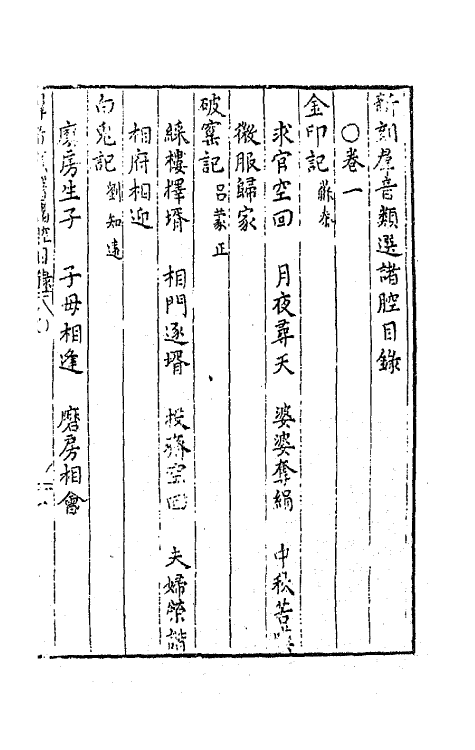 新刻羣音類選諸腔目錄
○卷一
金印記 蘇秦
求官空回 月夜尋夫 婆婆奪絹 中秋苦
微服歸家
破窯記 呂蒙正
綵樓擇壻 相門逐壻 投齋空回 夫婦榮諧
相府相迎
白兔記 劉知遠
磨房生子 子母相逢 磨房相會